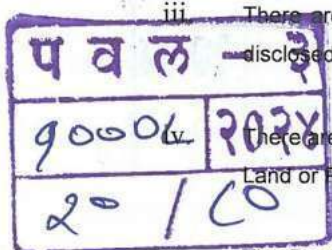 iii There are
पवल - ३ disclosed
१०००८ २०२४ iv. There are
Land or
२० / ८०